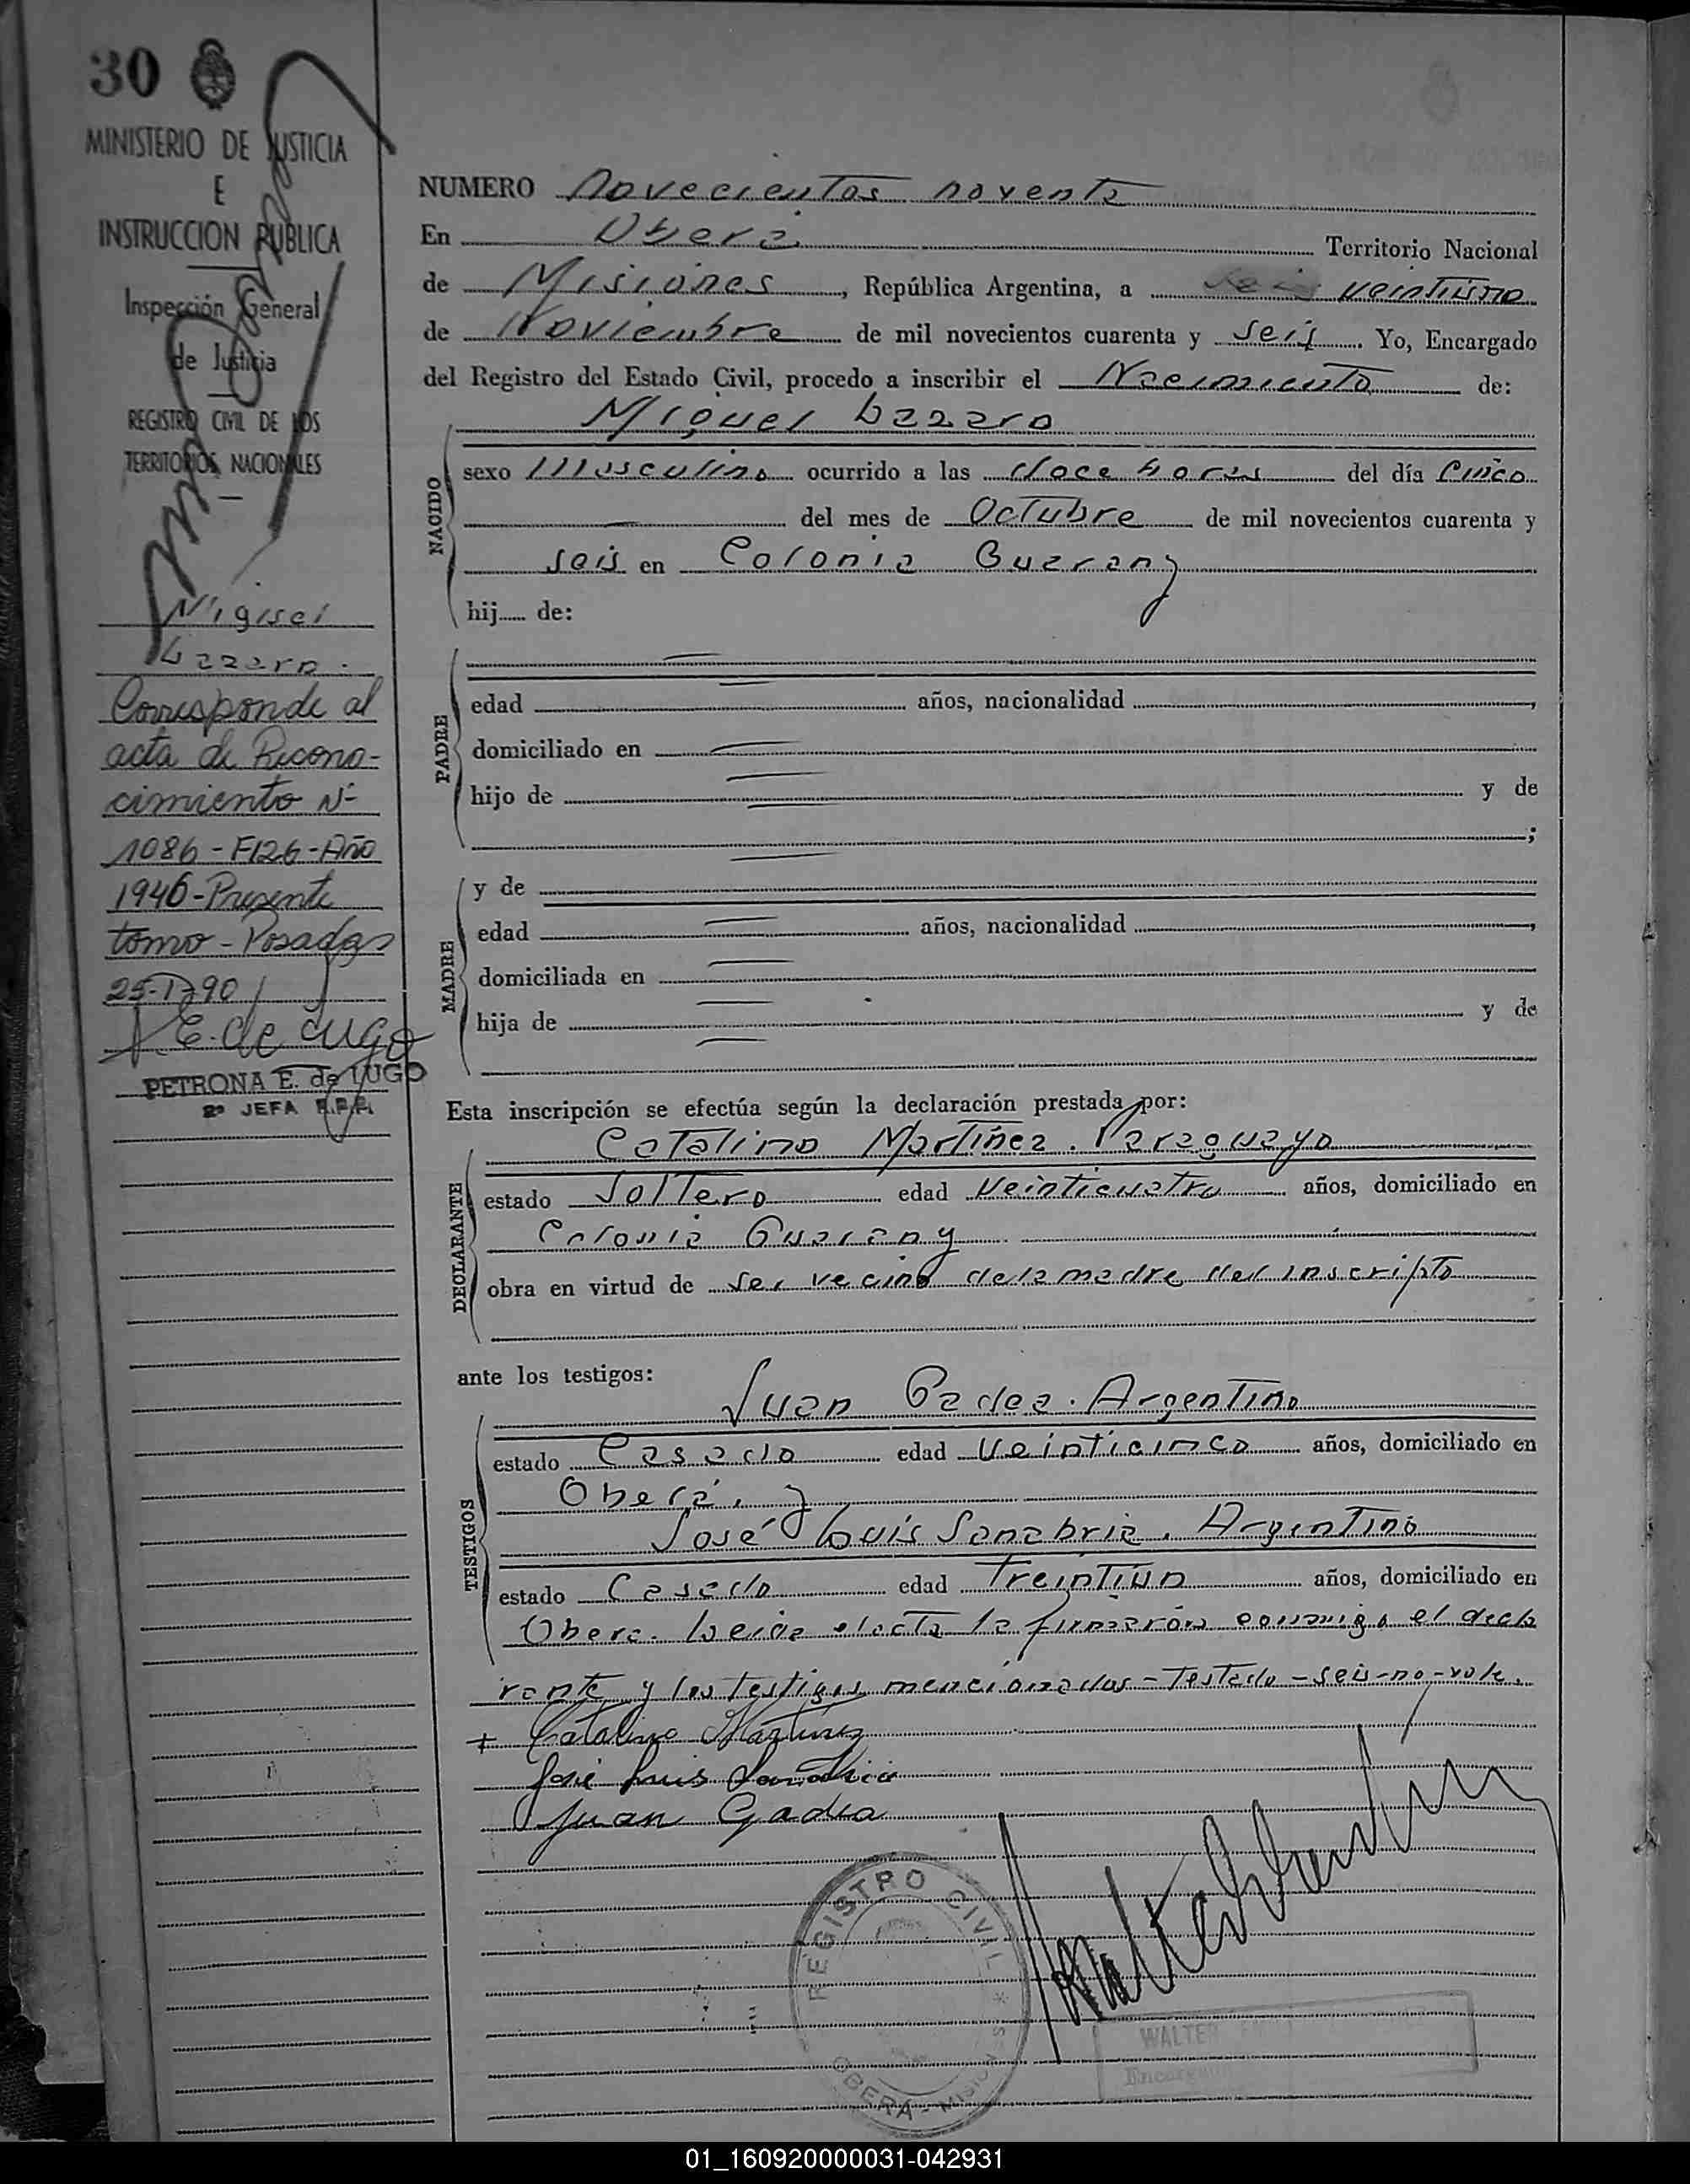 30
MINISTERIO DE JUSTICIA
E
INSTRUCCION PUBLICA
Inspección General
de Justicia
REGISTRO CIVIL DE LOS
TERRITORIOS NACIONALES
Miguel
Lazaro.
Corresponde al
acta de Recono-
cimiento Nº
1086 - F126 - Año
1946 - Presente
tomo - Posadas
25-1-90
E. de Lugo
PETRONA E. de LUGO
2º JEFA
NUMERO novecientos noventa
En Oberá. Territorio Nacional
de Misiones, República Argentina, a seis veintiuno
de Noviembre de mil novecientos cuarenta y seis. Yo, Encargado
del Registro del Estado Civil, procedo a inscribir el Nacimiento de:
Miguel Lazaro
NACIDO
sexo Masculino ocurrido a las doce horas del día Cinco
del mes de Octubre de mil novecientos cuarenta y
seis en Colonia Guarany
hij de:
PADRE
edad años, nacionalidad
domiciliado en
hijo de y de
;
MADRE
y de
edad años, nacionalidad
domiciliada en
hija de y de
Esta inscripción se efectúa según la declaración prestada por:
DECLARANTE
Catalino Martínez. Paraguayo
estado Soltero edad Veinticuatro años, domiciliado en
Colonia Guarany
obra en virtud de ser vecino de la madre del inscripto
ante los testigos:
TESTIGOS
Juan Gadea. Argentino
estado Casado edad Veinticinco años, domiciliado en
Oberá. y
José Luis Sanabria. Argentino
estado Casado edad Treintiún años, domiciliado en
Obera. Leida el acta la firmaron conmigo el decla
rante y los testigos mencionados - Testado - seis - no - vale.
+ Catalino Martinez
José Luis Sanabria
Juan Gadea
REGISTRO CIVIL
OBERA - MISIONES
WALTER
01_160920000031-042931